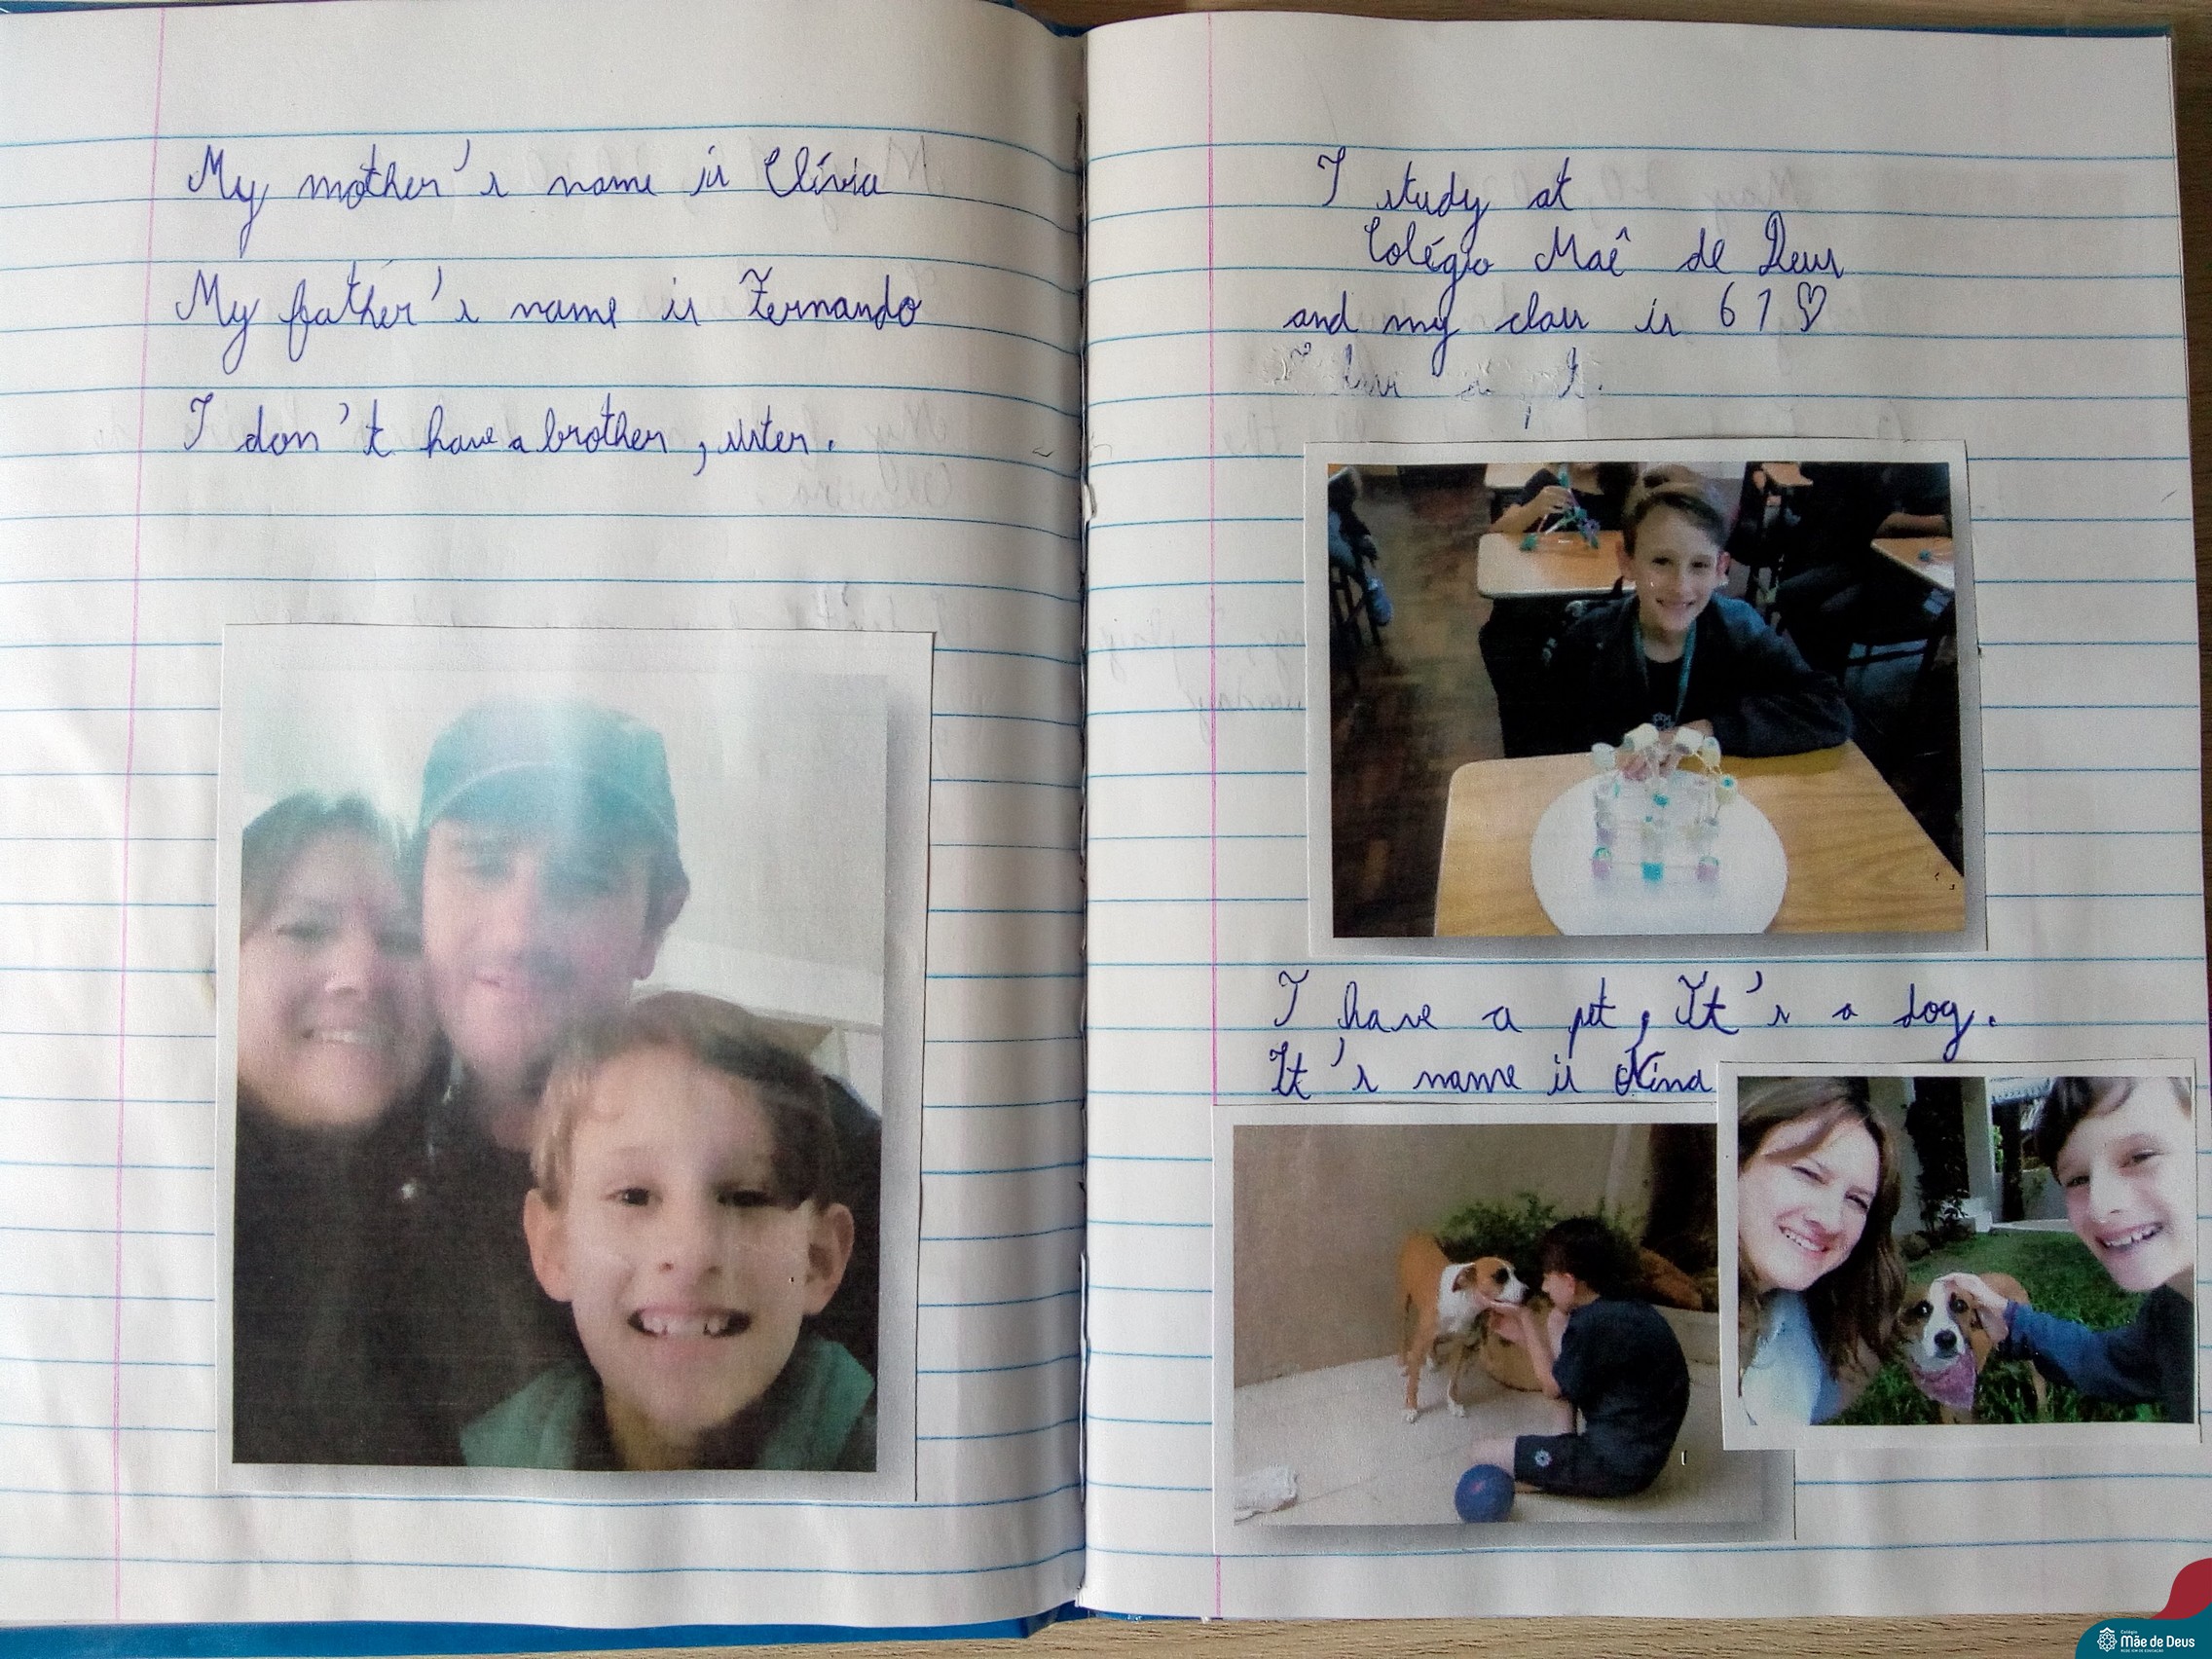 My mother's name is Clívia
My father's name is Fernando
I don't have a brother, sister.
I study at
Colégio Maê de Deus
and my class is 61
I have a pet, It's a dog.
It's name is Nina
Colégio
Mãe de Deus